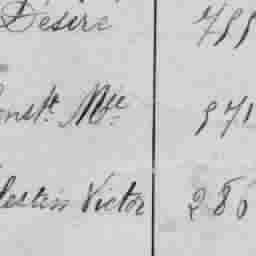 Désiré 755
Const. Mie 571
lestin Victor 286